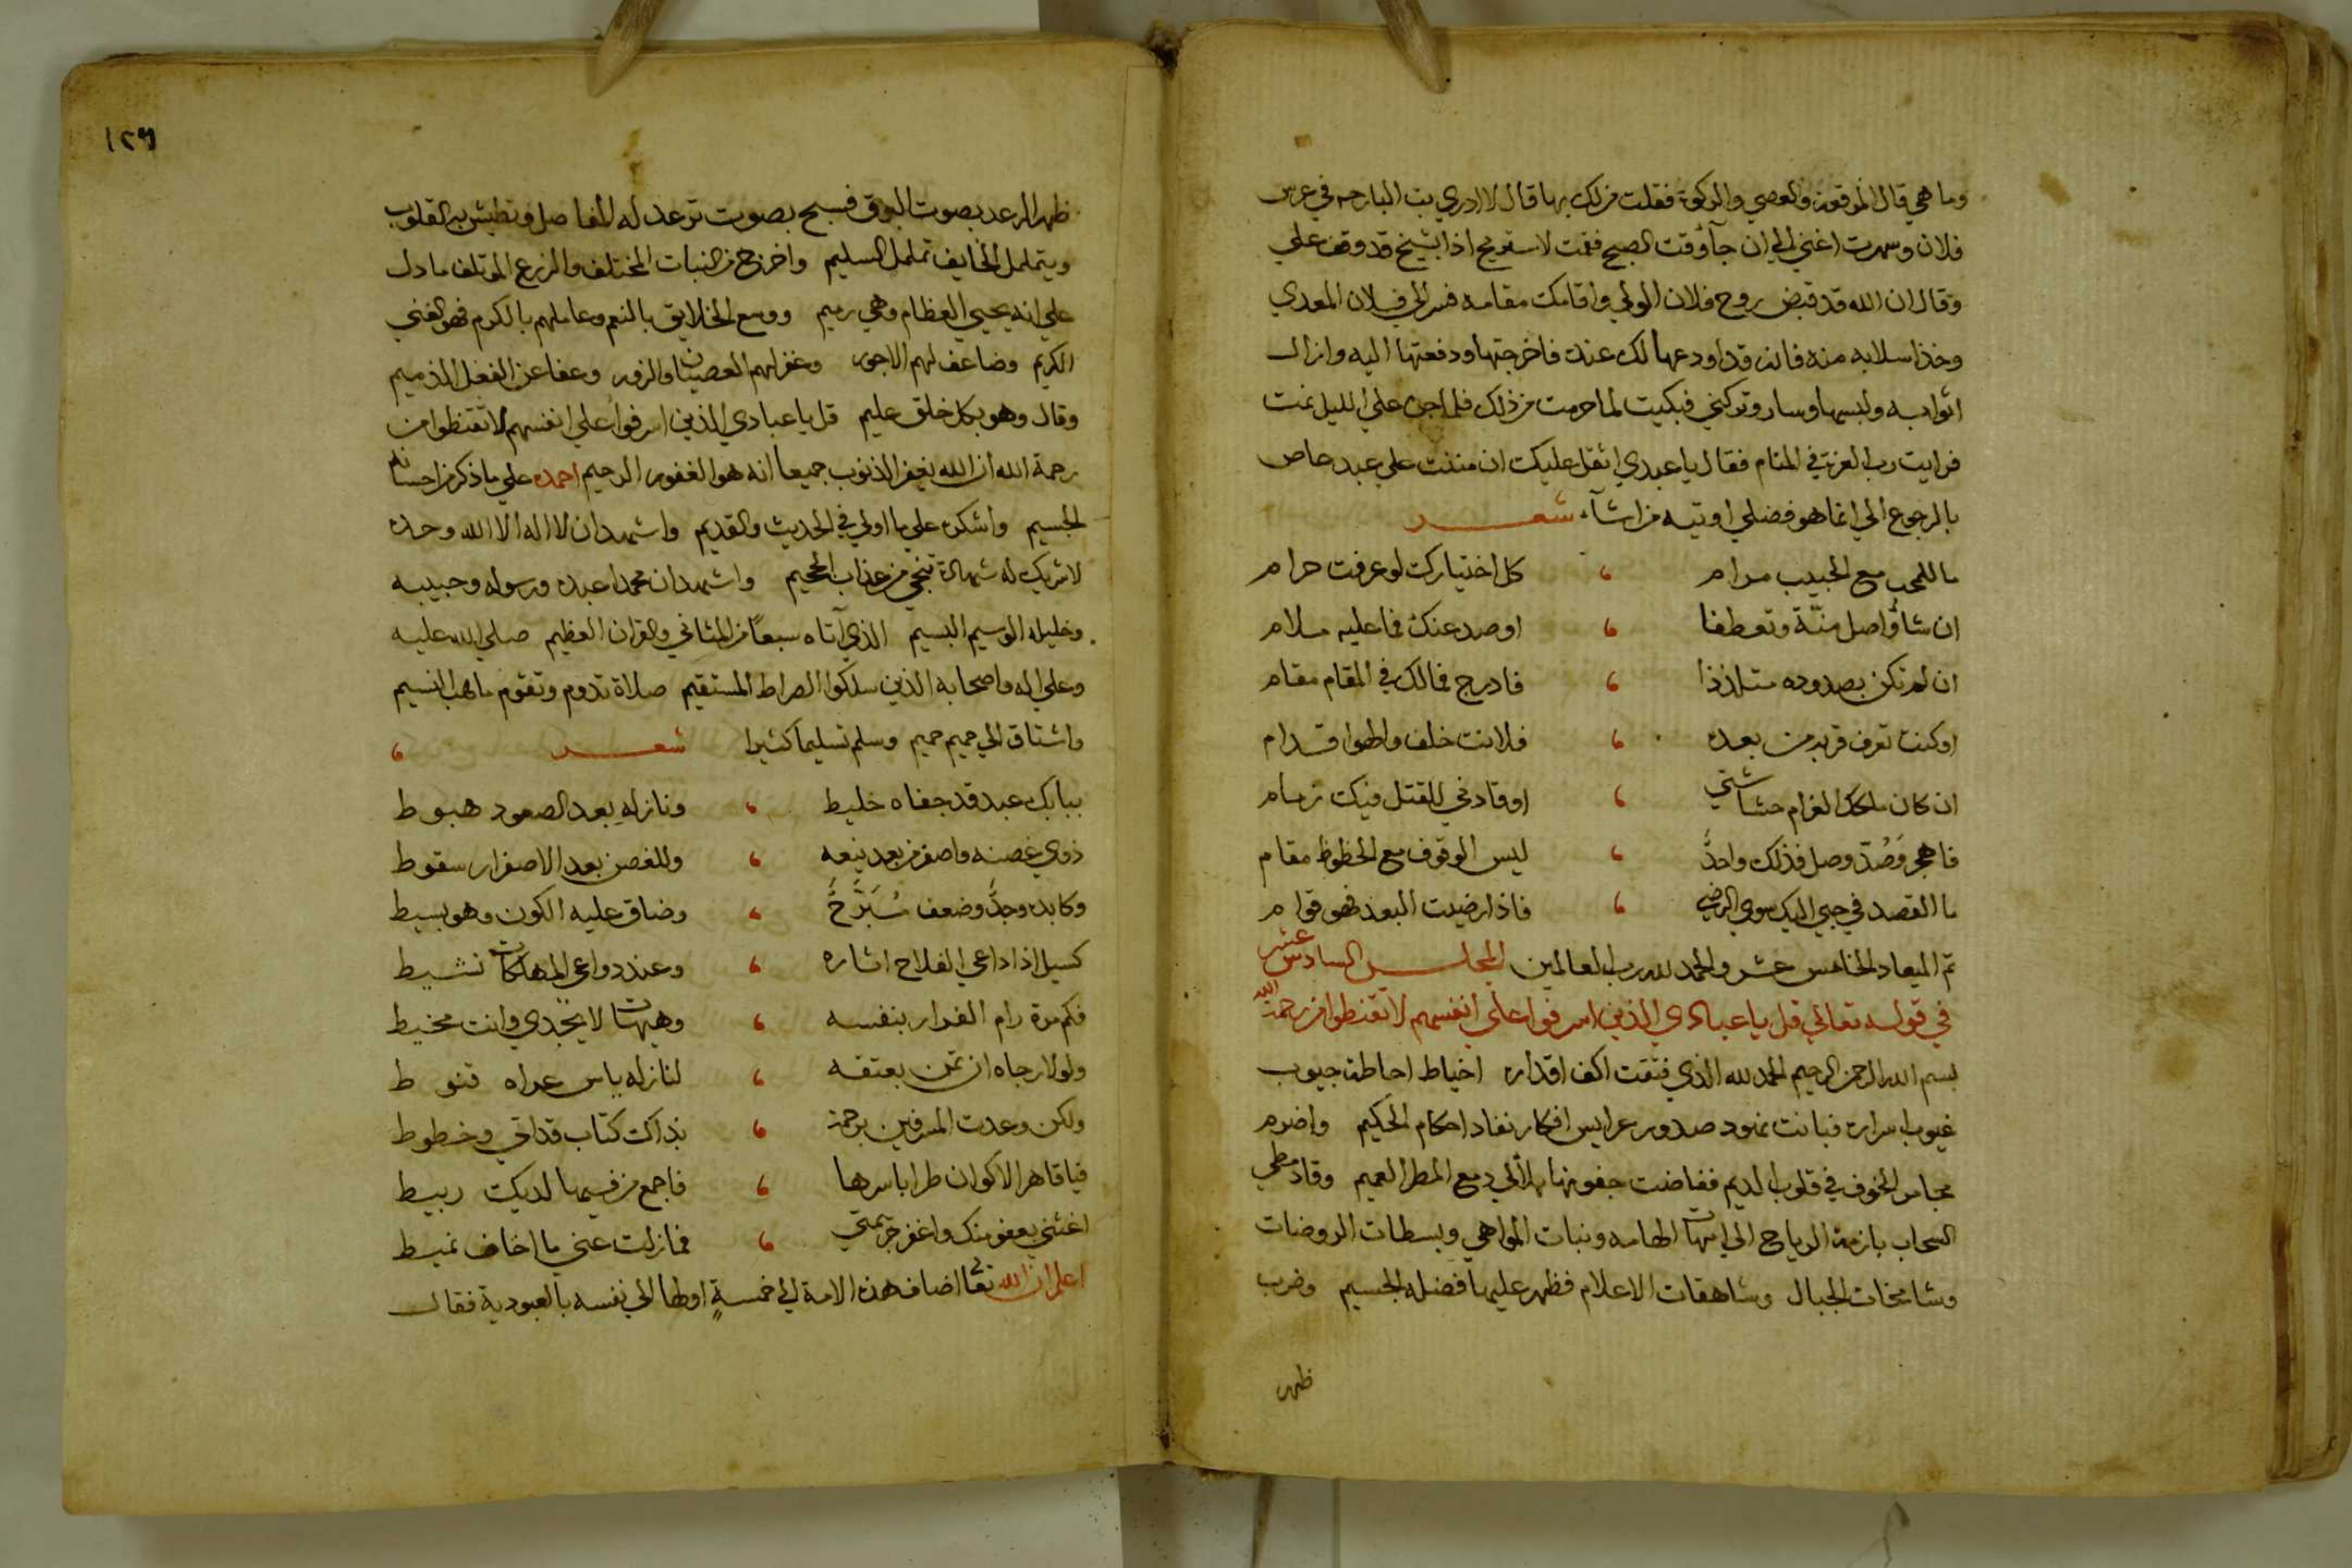 وما هي قال المرقعة والعصي والركوة فقلت من لك بها قال لا ادري بت البارحه في عرس
فلان وسهرت اغني الي ان جآ وقت الصبح فقمت لاستريح اذا بشيخ قد وقف علي
وقال ان الله قد قبض روح فلان الولي واقامك مقامه فسر الي فلان المعدي
وخذ اسلابه منه فانه قد اودعها لك عنده فاخرجتها ودفعتها اليه وازال
اثوابه ولبسها وسار وتركني فبكيت لما حرمت من ذلك فلما جن علي الليل نمت
فرايت رب العزة في المنام فقال يا عبدي اثقل عليك ان مننت علي عبد عاص
بالرجوع الي انما هو فضلي اوتيه من اشآء شعر
ما للمحب مع الحبيب مرام ، كل اختيارك لو عرفت حرام
ان شاؤا صل منّة وتعطفا ، او صد عنك فما عليه ملام
ان لم تكن بصدوده متلذذا ، فادرج فمالك في المقام مقام
او كنت تعرف قربه من بعده ، فلانت خلف والهوا قدام
ان كان ملكك الغرام حشاشتي ، او قادني للقتل فيك زمام
فاهجر وَصُدّ وصل فذلك واحدٌ ، ليس الوقوف مع الحظوظ مقام
ما القصد في حبي اليك سوي الرضي ، فاذا رضيت البعد فهو قوام
تم الميعاد الخامس عشر والحمد لله رب العالمين المجلس السادس عشر
في قوله تعالي قل يا عبادي الذين اسرفوا علي انفسهم لا تقنطوا من رحمة الله
بسم الله الرحمن الرحيم الحمد لله الذي فتقت اكف اقداره اخياط احاطة جيوب
غيوب اسراره فبانت نهود صدور عرايس افكار نفاد احكام الحكيم واضرم
مجامر الخوف في قلوب الديم ففاضت جفونها بلآلي دمع المطر العميم وقاد مطي
السحاب بازمة الرياح الي امهات الهامه ونبات المواهي وبسطات الروضات
وشامخات الجبال وشاهقات الاعلام فظهر عليها فضله الجسيم وضرب
ظهر
١٢٦
ظهر الرعد بصوت البوق فسبح بصوت ترعد له المفاصل وتطيش به القلوب
ويتململ الخايف تململ السليم واخرج من النبات المختلف والزرع الموتلف ما دل
علي انه يحيي العظام وهي رميم ووسع الخلايق بالنعم وعاملهم بالكرم فهو الغني
الكريم وضاعف لهم الاجور وغفر لهم العصيان والزور وعفا عن الفعل الذميم
وقال وهو بكل خلق عليم قل يا عبادي الذين اسرفوا علي انفسهم لا تقنطوا من
رحمة الله ان الله يغفر الذنوب جميعا انه هو الغفور الرحيم احمده علي ما ذكر من احسانه
الجسيم واشكره علي ما اولي في الحديث والقديم واشهد ان لا اله الا الله وحده
لا شريك له شهادة تنجي من عذاب الجحيم واشهد ان محمدا عبده ورسوله وحبيبه
وخليله الوسيم البسيم الذي آتاه سبعاً من المثاني والقران العظيم صلي الله عليه
وعلي اله واصحابه الذين سلكوا الصراط المستقيم صلاة تدوم وتقوم ما هب النسيم
واشتاق الي حميم حميم وسلم تسليما كثيرا شعر ،
ببابك عبد قد جفاه خليط ، ونازله بعد الصعود هبوط
ذوي غصنه واصفر من بعد ينعه ، وللغصن بعد الاصفرار سقوط
وكابده وجدٌ وضعف مُبَرّحٌ ، وضاق عليه الكون وهو بسيط
كسيل اذا داعي الفلاح اشاره ، وعند دواعي المهلكات نشيط
فكم مرة رام الفرار بنفسه ، وهيهات لا يجدي وانت محيط
ولولا رجاه ان تمن بعتقه ، لنازله ياس عراه قنوط
ولكن وعدت المسرفين برحمة ، بذاك كتاب قد اتي وخطوط
فيا قاهر الاكوان طرا باسرها ، فاجمع من فيها لديك ربيط
اغثني بعفو منك واغفر جريمتي ، فما زلت عني ما اخاف تميط
اعلم ان الله تعالي اضاف هذه الامة الي خمسةٍ اولها الي نفسه بالعبودية فقال